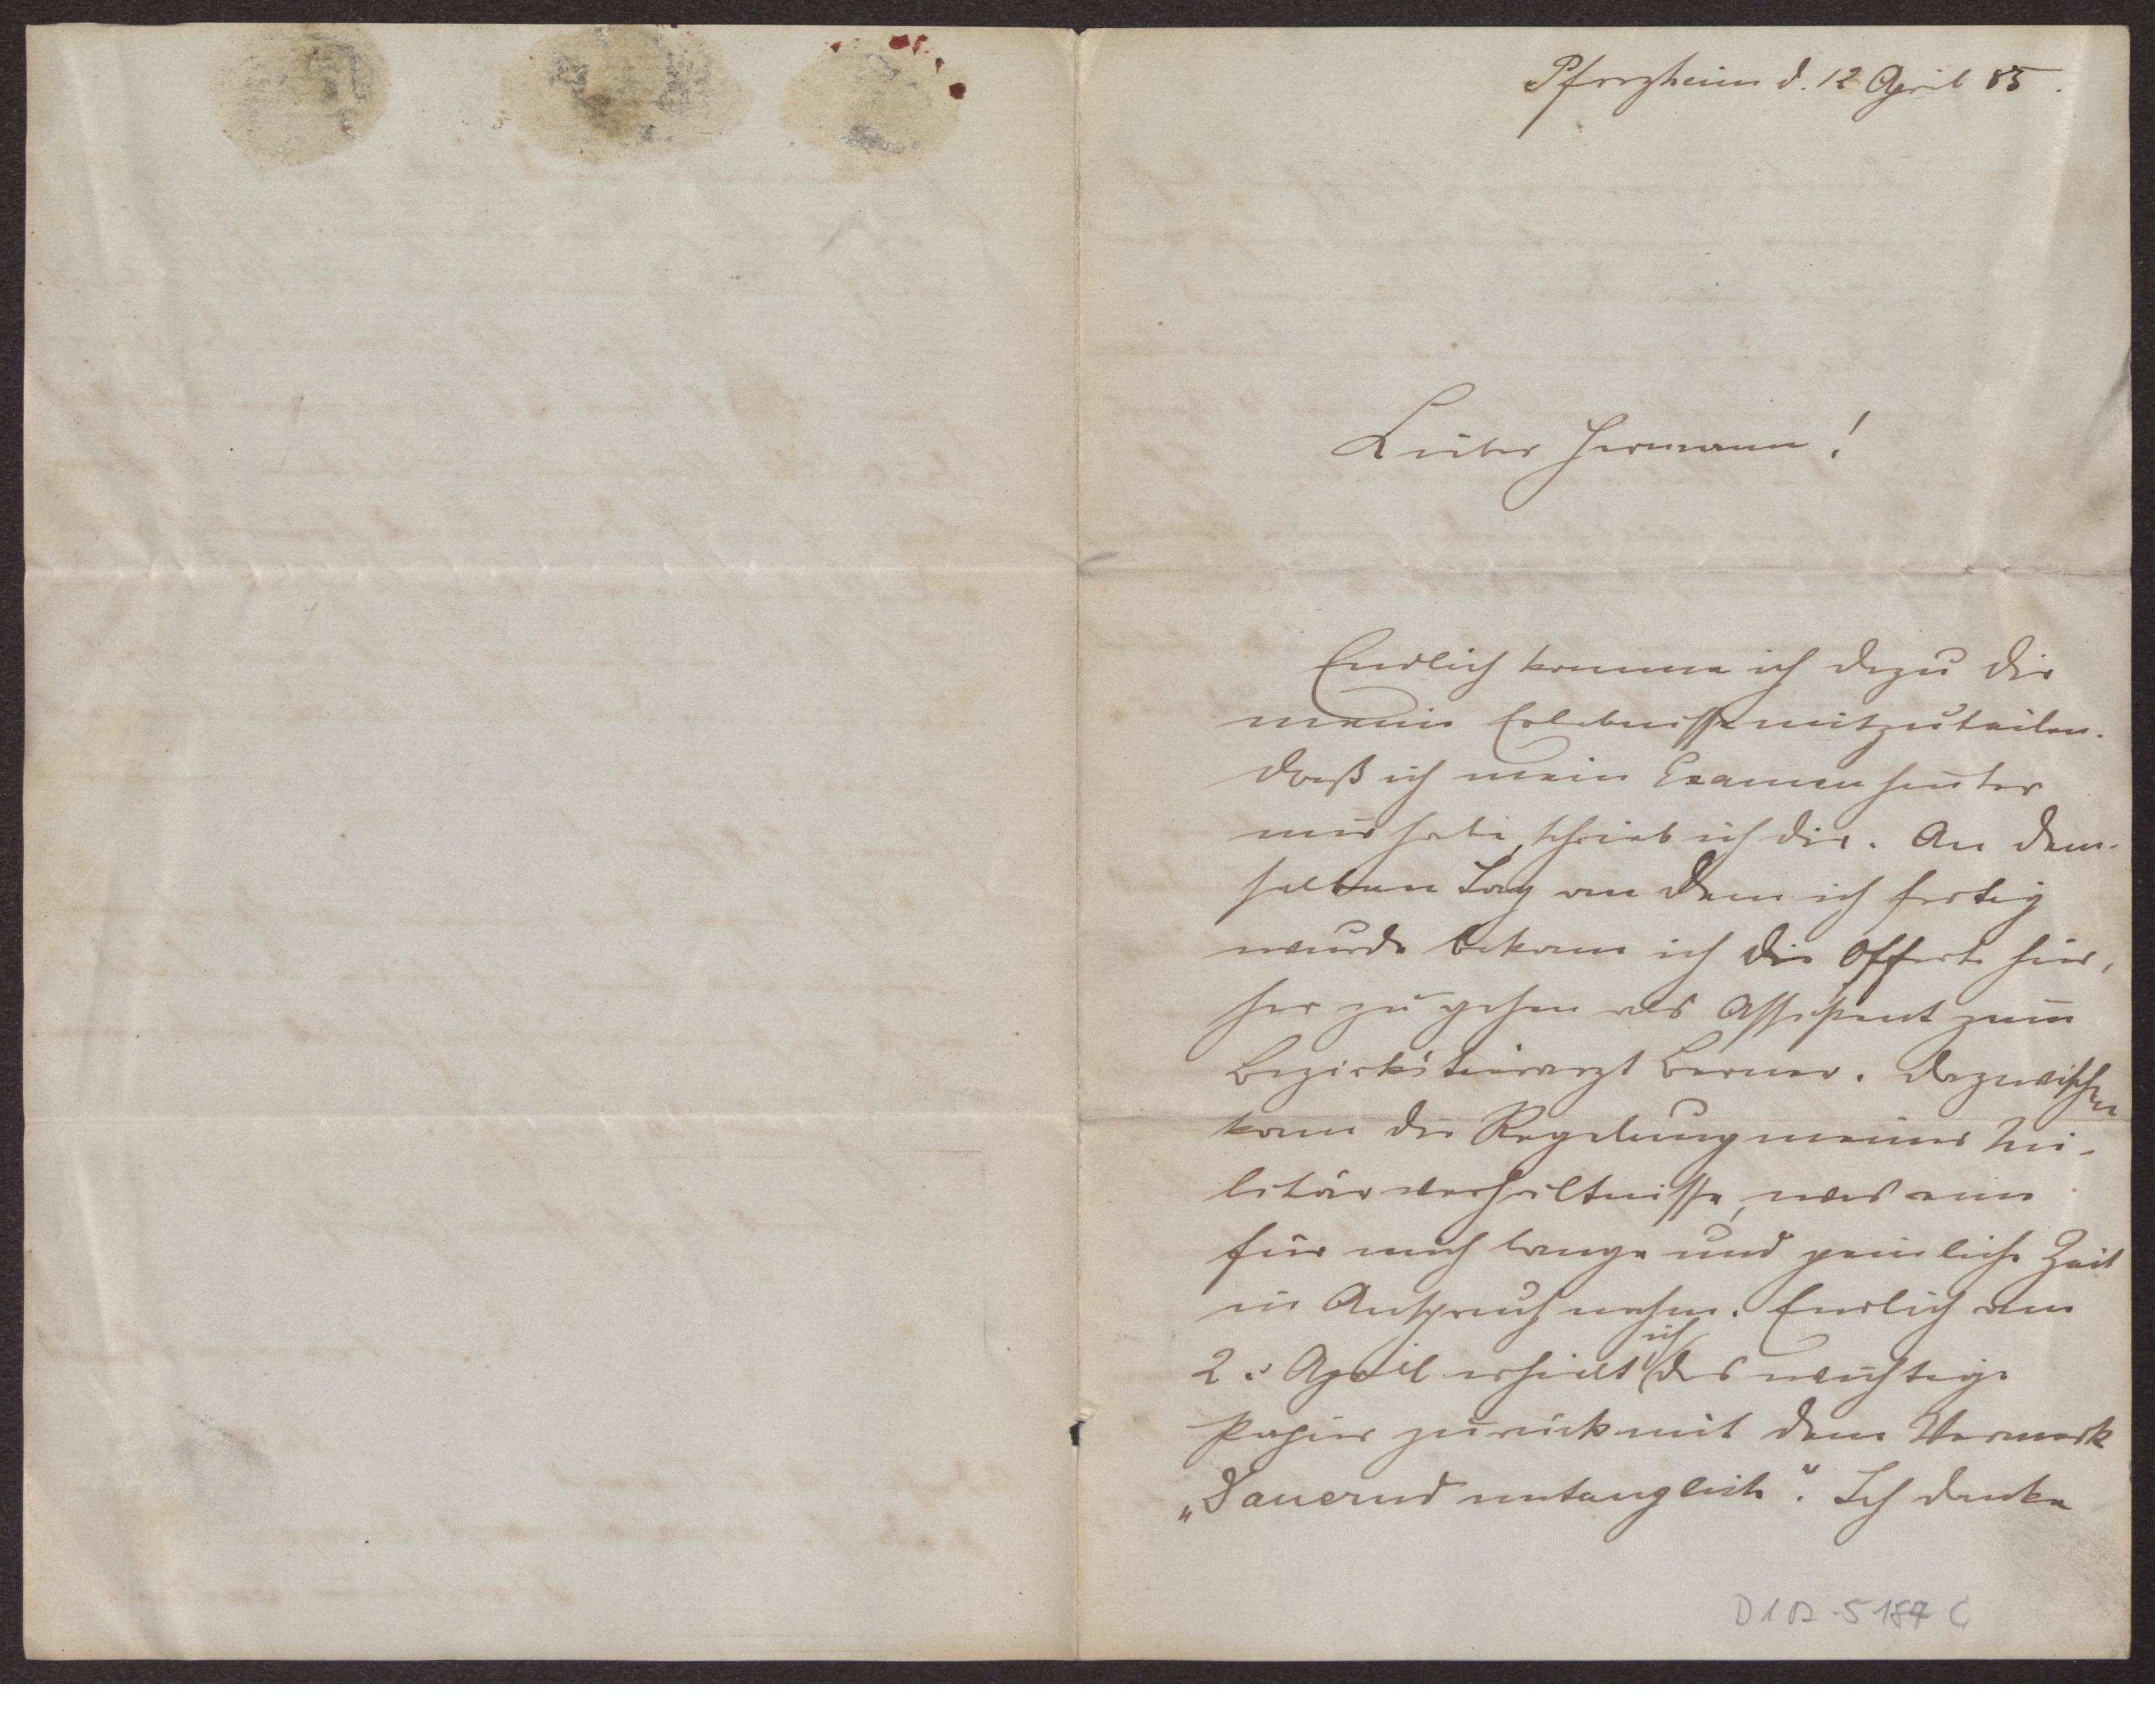 Pforzheim d. 12 April 85.
Lieber Hermann!
Endlich komme ich dazu dir
meine Erlebnisse mitzuteilen.
Daß ich mein Examen hinter
mir habe, schrieb ich dir. An dem-
selben Tag an dem ich fertig
wurde bekam ich die Offerte hier,
her zu gehen als Assistent zum
Bezirkstierarzt Berner. Dazwischen
kam die Regelung meiner Mi-
litärverhältnisse, was eine
für mich lange und peinliche Zeit
in Anspruch nahm. Endlich am
2. April erhielt ich das wichtige
Papier zurück mit dem Vermerk
„Dauernd untauglich“. Ich denke
D1A 5187 C